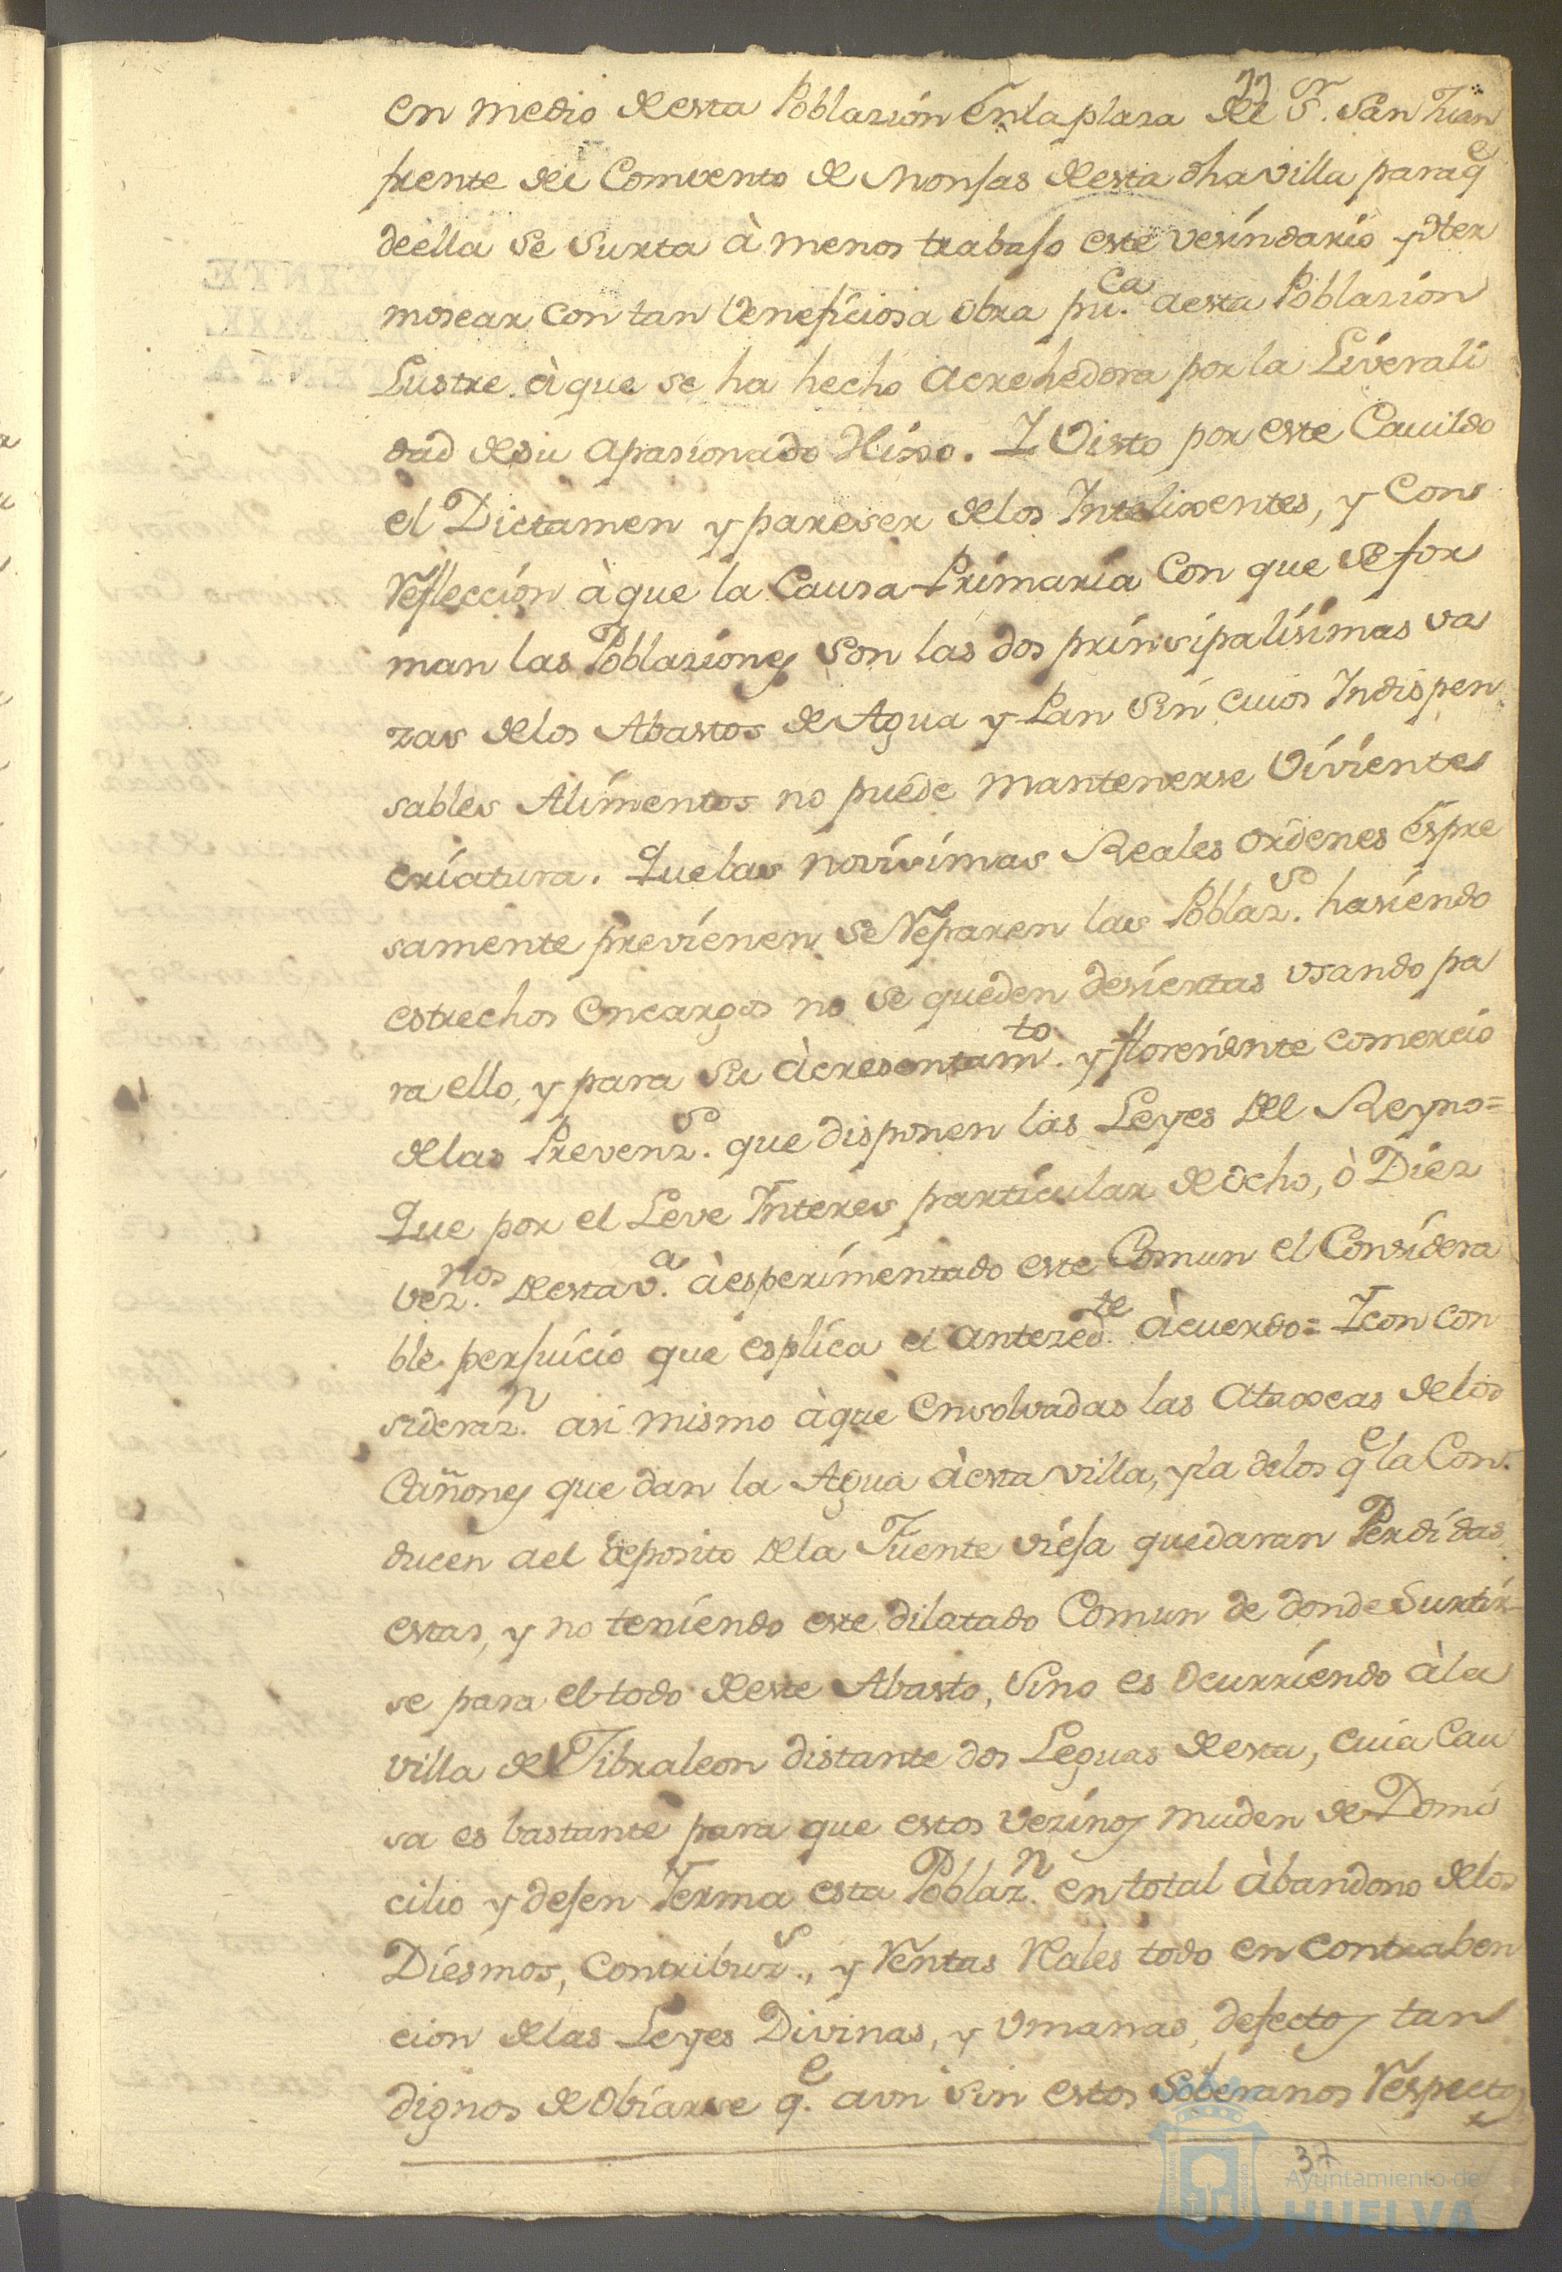 22
en medio de esta Poblasión en la plasa de Sr. San Juan
frente del Comvento de Monjas de esta dha villa para qe
de ella se surta à menos trabajo este vesindario y Her
mosear con tan beneficiosa obra puca. a esta Poblasion
Lustre à que se ha hecho acrehedora por la Liverali
dad de su apasionado Hixo. Y Visto por este Cavildo
el Dictamen y pareser de los Intelixentes, y Con
Reflección à que la Causa Primaria Con que se for
man las Poblasiones son las dos prinsipalisimas va
zas de los Abastos de Agua y Pan sin cuios Indispen
sables Alimentos no puede mantenerse Viviente
criatura. Que las novisimas Reales ordenes espre
samente previenen se Reparen las Poblazs. hasiendo
estrechos encargos no se queden desiertas usando pa
ra ello, y para su àcresentamto. y floresiente comercio
de las Prevenzs. que disponen las Leyes del Reyno=
Que por el Leve Interes particular de ocho, ò Diez
veznos. de esta va. à esperimentado este Comun el Considera
ble perjuicio que esplica el antezedte. àcuerdo= Y con con
siderazn. asi mismo à que ensolvadas las ataxeas de los
Cañones que dan la Agua à esta villa, y la de los qe la Con
ducen al deposito de la Fuente vieja quedaran Perdidas
estas, y no teniendo este dilatado Comun de donde Surtir-
se para el todo de este Abasto, sino es ocurriendo à la
villa de Jibraleon distante dos Leguas de esta, cuia Cau
sa es bastante para que estos vezinos muden de Domi
cilio y dejen Yerma esta Poblazn. en total àbandono de los
Diesmos, Contribuzs., y Rentas Reales todo en contraben
cion de las Leyes Divinas, y Vmanas, defectos tan
dignos de Obiarse qe. aun sin estos Soberanos Respectos
37
Ayuntamiento de
HUELVA